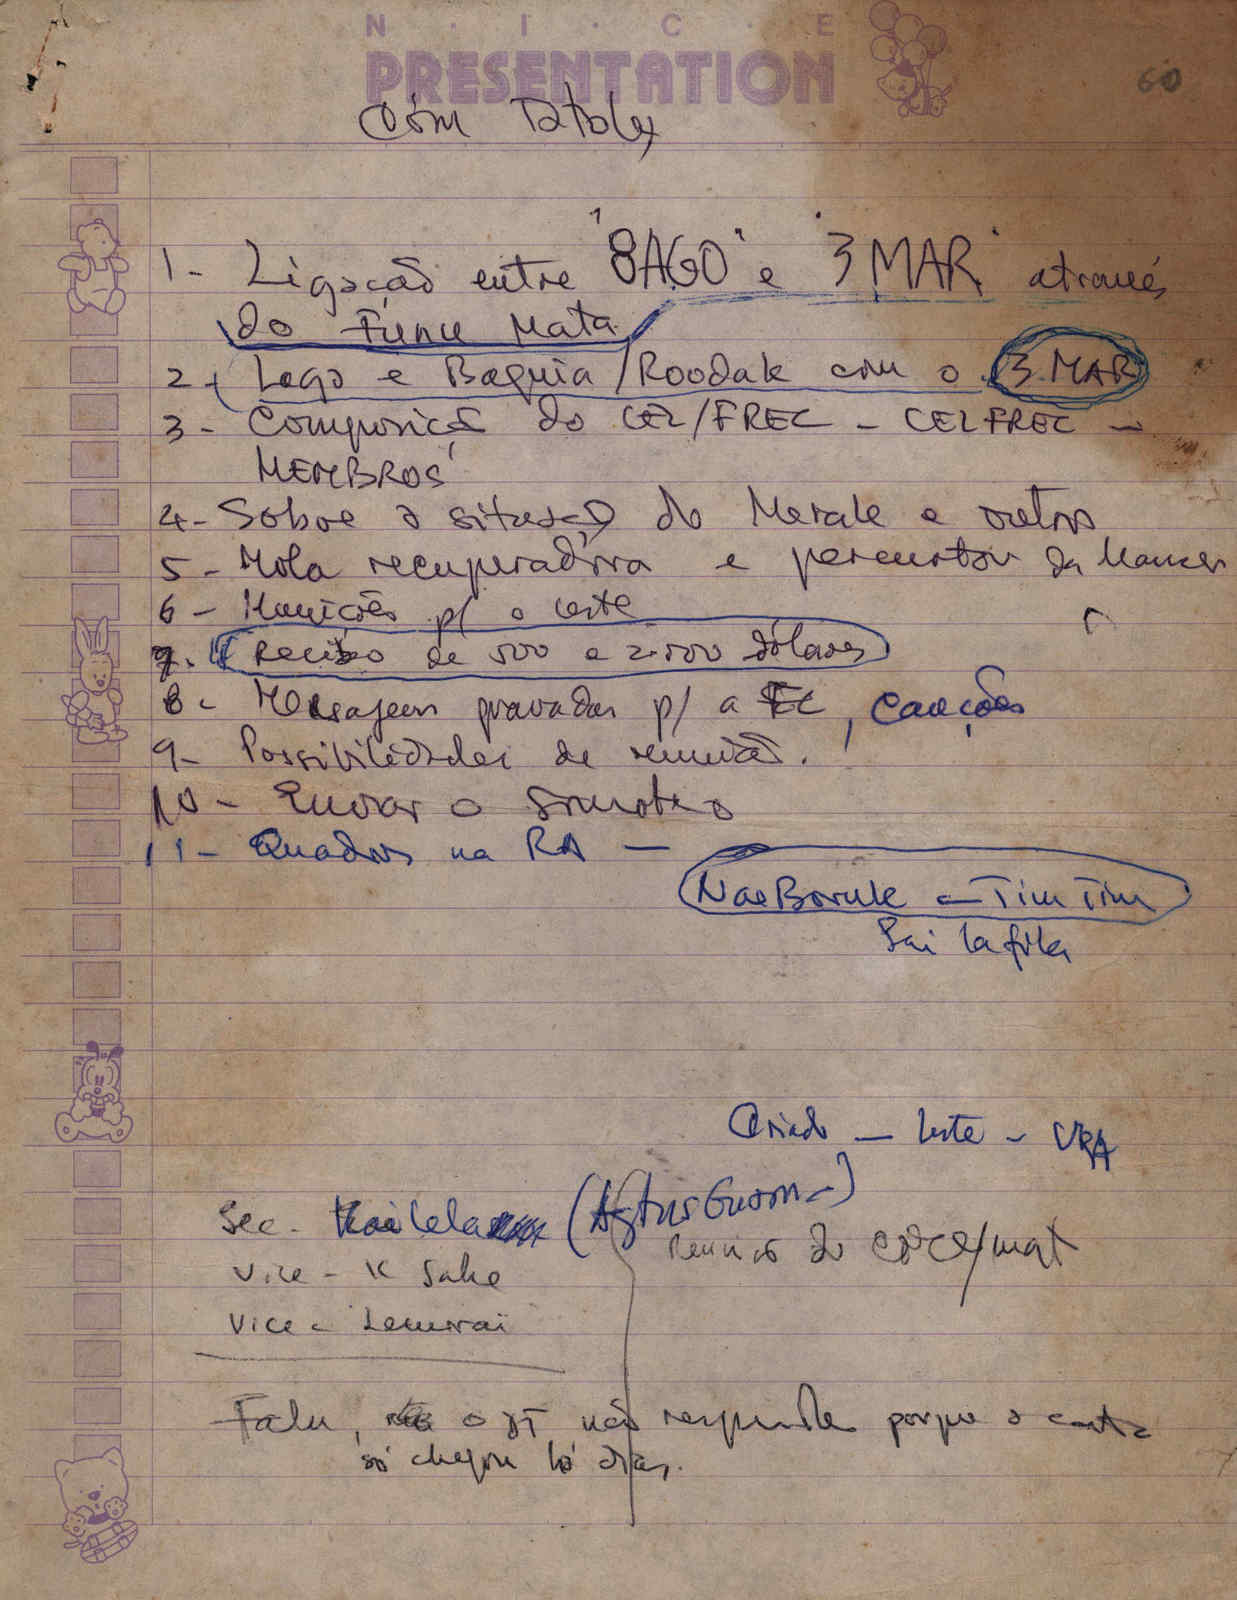 N · I · C · E
PRESENTATION
60
Com Tatoly
1- Ligação entre "8AGO" e 3 MAR" através
do Funu Mata
2- Lago e Baguia/Roodak com o 3 MAR
3- Composição do CEL/FREC - CELFREC -
MEMBROS
4- Sobre a situação do Merak e outros
5- Mola recuperadora e percurtor da Mauser
6- Munições p/ o leste
7. Recibo de 500 e 2.500 dólares
8- Mensagem gravadas p/ a FEC, canções
9- Possibilidades de reunião.
10- Enviar o
11- Quadros na RA -
NaeBoruk - Tim Tim
Sai Lafila
Criado - leste - URA
Sec. Kailela
Reunião do
Vice - K Sake
Vice - Lemorai
Falu, o JT não respondeu porque a carta
só chegou há dias.